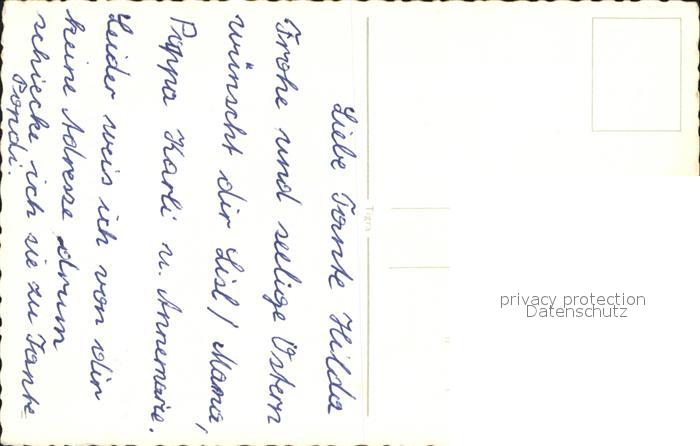 Liebe Tante Hilda
Frohe und seelige Ostern
wünscht dir Lisl / Mama,
Pappa Karli u. Annemarie.
Leider weis ich von dir
keine Adresse drum
schiecke ich sie zu Tante
Pordi.
Tigra
privacy protection
Datenschutz